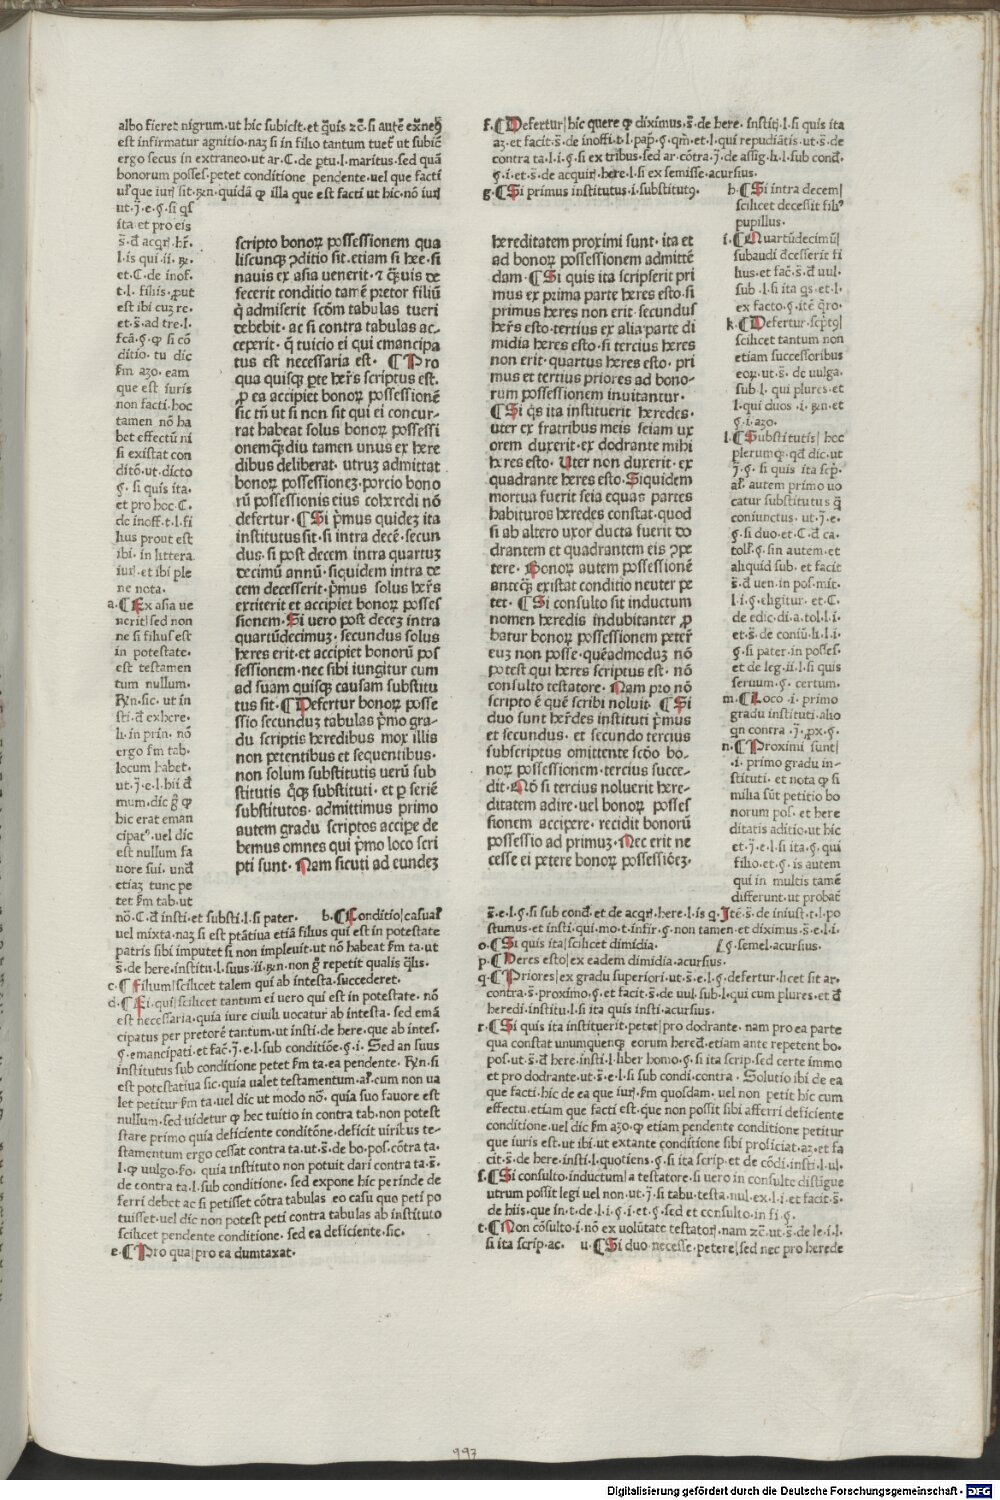 albo fieret nigrum·ut hic subicit·et q̃uis ꝛc̃·si autẽ
est infirmatur agnitio·naꝫ si in filio tantum tuet᷑ ut
ergo secus in extraneo·ut ar·C·de ptu·l·maritus·sed quã
bonorum posses·petet conditione pendente·uel que facti
sit·quidã ꝙ illa que est facti ut hic·nõ
ut·j̃·e·§·si qs̃
ita et pro eis
l·is qui·ii·
et·C·de inof·
t·l·filiis·ꝓut
est ibi cuꝫ re·
et·s̃·ad tre·l·
§·ꝙ si cõ
ditio·tu dic
azo·eam
que est iuris
non facti·hoc
tamen nõ ha
bet effectũ ni
si existat con
ditõ·ut·dicto
§·si quis ita·
et pro hoc·C·
de inoff·t·l·fi
lius prout est
ibi·in littera
et ibi ple
ne nota·
a·¶Ex asia ue
nerit|sed non
ne si filius est
in potestate·
est testamen
tum nullum·
sic·ut in
sti·d̃ exhere·
li·in prin·nõ
ergo tab·
locum habet·
ut·j̃·e·l·hii d̃
mum·dic ꝙ
hic erat eman
cipat⁹·uel dic
est nullum fa
uore sui·
etiaꝫ tunc pe
tet tab·ut
nõ·C·d̃ insti·et substi·l·si pater· b·¶Conditio|casual᷑
uel mixta·naꝫ si est ptãtiua etiã filius qui est in potestate
patris sibi imputet si non impleuit·ut nõ habeat ta·ut
s̃·de here·institu·l·suus·ii·non repetit qualis
c·¶Filium|scilicet talem qui ab intesta·succederet·
d·¶Ei·qui|scilicet tantum ei uero qui est in potestate·nõ
est necessaria·quia iure ciuili uocatur ab intesta·sed emã
cipatus per pretorẽ tantum·ut insti·de here·que ab intes·
§·emancipati·et fac̃·j̃·e·l·sub conditiõe·§·i·Sed an suus
institutus sub conditione petet ta·ea pendente·si
est potestatiua sic·quia ualet testamentum·cum non ua
let petitur ta·uel dic ut modo nõ·quia suo fauore est
nullum·sed uidetur ꝙ hec tuitio in contra tab·non potest
stare primo quia deficiente conditõne·deficit uiribus te-
stamentum ergo cessat contra ta·ut·s̃·de bo·pos·cõtra ta·
l·ꝙ uulgo·quia instituto non potuit dari contra ta·s̃·
de contra ta·l·sub conditione·sed expone hic perinde de
ferri debet ac si petisset cõtra tabulas eo casu quo peti po
tuisset·uel dic non potest peti contra tabulas ab instituto
scilicet pendente conditione·sed ea deficiente·sic·
e·¶Pro qua|pro ea dumtaxat·
scripto bonoꝝ possessionem qua
liscunqꝫ ↄditio sit·etiam si hec·si
nauis ex asia uenerit·⁊ q̃uis de
fecerit conditio tamẽ pretor filiũ
q̃ admiserit scđm tabulas tueri
debebit·ac si contra tabulas ac-
ceperit·q̃ tuicio ei qui emancipa
tus est necessaria est·¶Pro
qua quisqꝫ pte her̃s scriptus est·
ꝓ ea accipiet bonoꝝ possessionẽ
sic tñ ut si non sit qui ei concur-
rat habeat solus bonoꝝ possessi
onemqꝫ̃diu tamen unus ex here
dibus deliberat·utruꝫ admittat
bonoꝝ possessioneꝫ·porcio bono
rũ possessionis eius coheredi nõ
defertur·¶Si p̃mus quideꝫ ita
institutus sit·si intra decẽ·secun
dus·si post decem intra quartuꝫ
decimũ annũ·siquidem intra de
cem decesserit·p̃mus solus her̃s
extiterit et accipiet bonoꝝ posses
sionem·Si uero post deceꝫ intra
quartũdecimuꝫ·secundus solus
heres erit·et accipiet bonorũ pos
sessionem·nec sibi iungitur cum
ad suam quisqꝫ causam substitu
tus sit·¶Defertur bonoꝝ posse
ssio secunduꝫ tabulas p̃mo gra-
du scriptis heredibus mox illis
non petentibus et sequentibus·
non solum substitutis uerũ sub
stitutis q̃qꝫ substituti·et p seriẽ
substitutos·admittimus primo
autem gradu scriptos accipe de
bemus omnes qui p̃mo loco scri
pti sunt·Nam sicuti ad eundeꝫ
f·¶Defertur|hic quere ꝙ diximus·s̃·de here·instit·l·si quis ita
aꝫ·et facit·s̃·de inoffi·t·l·pap̃·§·qm̃·et·l·qui repudiãtis·ut·s̃·de
contra ta·l·i·§·si ex tribus·sed ar·cõtra·j̃·de assig̃·li·l·sub cond̃·
§·i·et·s̃·de acquir·here·l·si ex semisse·acursius·
g·¶Si primus institutus·i·substitut⁹·
hereditatem proximi sunt·ita et
ad bonoꝝ possessionem admittẽ
dam·¶Si quis ita scripserit pri
mus ex prima parte heres esto·si
primus heres non erit·secundus
her̃s esto·tertius ex alia parte di
midia heres esto·si tercius heres
non erit·quartus heres esto·pri
mus et tertius priores ad bono-
rum possessionem inuitantur·
¶Si q̃s ita instituerit heredes·
uter ex fratribus meis seiam ux
orem duxerit·ex dodrante mihi
heres esto·Uter non duxerit·ex
quadrante heres esto·Siquidem
mortua fuerit seia equas partes
habituros heredes constat·quod
si ab altero uxor ducta fuerit do
drantem et quadrantem eis ↄpe
tere·Bonoꝝ autem possessionẽ
anteq̃ꝫ existat conditio neuter pe
tet·¶Si consulto sit inductum
nomen heredis indubitanter ꝓ
batur bonoꝝ possessionem peter̃
euꝫ non posse·quẽadmoduꝫ nõ
potest qui heres scriptus est·nõ
consulto testatore·Nam pro nõ
scripto ẽ quẽ scribi noluit·¶Si
duo sunt her̃des instituti p̃mus
et secundus·et secundo tercius
subscriptus omittente scđo bo-
noꝝ possessionem·tercius succe-
dit·Nõ si tercius noluerit here-
ditatem adire·uel bonoꝝ posses
sionem accipere·recidit bonorũ
possessio ad primuꝫ·Nec erit ne
cesse ei petere bonoꝝ possessiõeꝫ·
h·¶Si intra decem|
scilicet decessit fili⁹
pupillus·
i·¶Quartũdecimũ|
subaudi d̃cesserit fi
lius·et fac̃·s̃·d̃ uul·
sub·l·si ita qs·et·l·
ex facto·§·itẽ q̃ro·
k·¶Defertur·scp̃t⁹|
scilicet tantum non
etiam successoribus
eoꝝ·ut·s̃·de uulga·
sub·l·qui plures·et
l·qui duos·i·et
§·i·azo·
l·¶Substitutis|hoc
plerumqꝫ·qđ dic·ut
j̃·§·si quis ita scp̃·
autem primo uo
catur substitutus q̃
coniunctus·ut·j̃·e·
§·si duo·et·C·d̃ ca·
toll·§·sin autem·et
aliquid sub·et facit
s̃·d̃ uen·in pos·mit·
l·i·§·eligitur·et·C·
de edic·di·a·tol·l·i·
et·s̃·de coniũ·li·l·i·
§·si pater·in posses·
et de leg·ii·l·si quis
seruum·§·certum·
m·¶Loco·i·primo
gradu instituti·alio
qn contra·j̃·ꝓx·§·
n·¶Proximi sunt|
·i·primo gradu in-
stituti·et nota ꝙ si
milia sũt petitio bo
norum pos·et here
ditatis aditio·ut hic
et·j̃·e·l·si ita·§·qui
filio·et·§·is autem
qui in multis tamẽ
differunt·ut probat᷑
s̃·e·l·§·si sub cond̃·et de acqr̃·here·l·is q·Itẽ·s̃·de iniust·t·l·po
stumus·et insti·qui·mo·t·infir·§·non tamen·et diximus·s̃·e·l·i·
o·¶Si quis ita|scilicet dimidia· [§·semel·acursius·
p·¶Heres esto|ex eadem dimidia·acursius·
q·¶Priores|ex gradu superiori·ut·s̃·e·l·§·defertur·licet sit ar·
contra·s̃·proximo·§·et facit·s̃·de uul·sub·l·qui cum plures·et d̃
heredi·institu·l·si ita quis insti·acursius·
r·¶Si quis ita instituerit·petet|pro dodrante·nam pro ea parte
qua constat unumquenqꝫ eorum hered̃·etiam ante repetent bo·
pos·ut·s̃·d̃ here·insti·l·liber homo·§·si ita scrip·sed certe immo
et pro dodrante·ut·s̃·e·l·si sub condi·contra·Solutio ibi de ea
que facti·hic de ea que quosdam·uel non petit hic cum
effectu·etiam que facti est·que non possit sibi afferri deficiente
conditione·uel dic azo·ꝙ etiam pendente conditione petitur
que iuris est·ut ibi·ut extante conditione sibi proficiat·az·et fa
cit·s̃·de here·insti·l·quotiens·§·si ita scrip·et de cõdi·insti·l·ul·
s·¶Si consulto·inductum|a testatore·si uero in consulte distigue
utrum possit legi uel non·ut·j̃·si tabu·testa·nul·ex·l·i·et facit·s̃·
de hiis·que in·t·de·l·i·§·i·et·§·sed et consulto·in fi·§·
t·¶Non cõsulto·i·nõ ex uolũtate testator·nam ꝛc̃·ut·s̃·de le·i·l·
si ita scrip·ac· u·¶Si duo·necesse·petere|sed nec pro herede
997
Digitalisierung gefördert durch die Deutsche Forschungsgemeinschaft · DFG